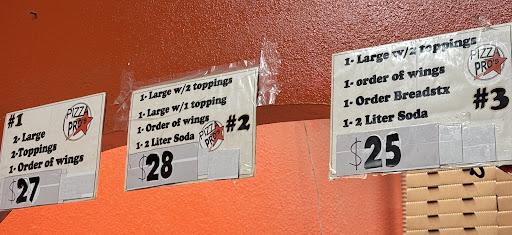 #1
PIZZA
PRO'S
2- Large
2-Toppings
1- Order of wings
$27
1- Large w/2 toppings
1- Large w/1 topping
1- Order of wings
1- 2 Liter Soda
PIZZA
PRO'S
#2
$28
1- Large w/2 toppings
1- order of wings
1- Order Breadstx
1- 2 Liter Soda
PIZZA
PRO'S
#3
$25